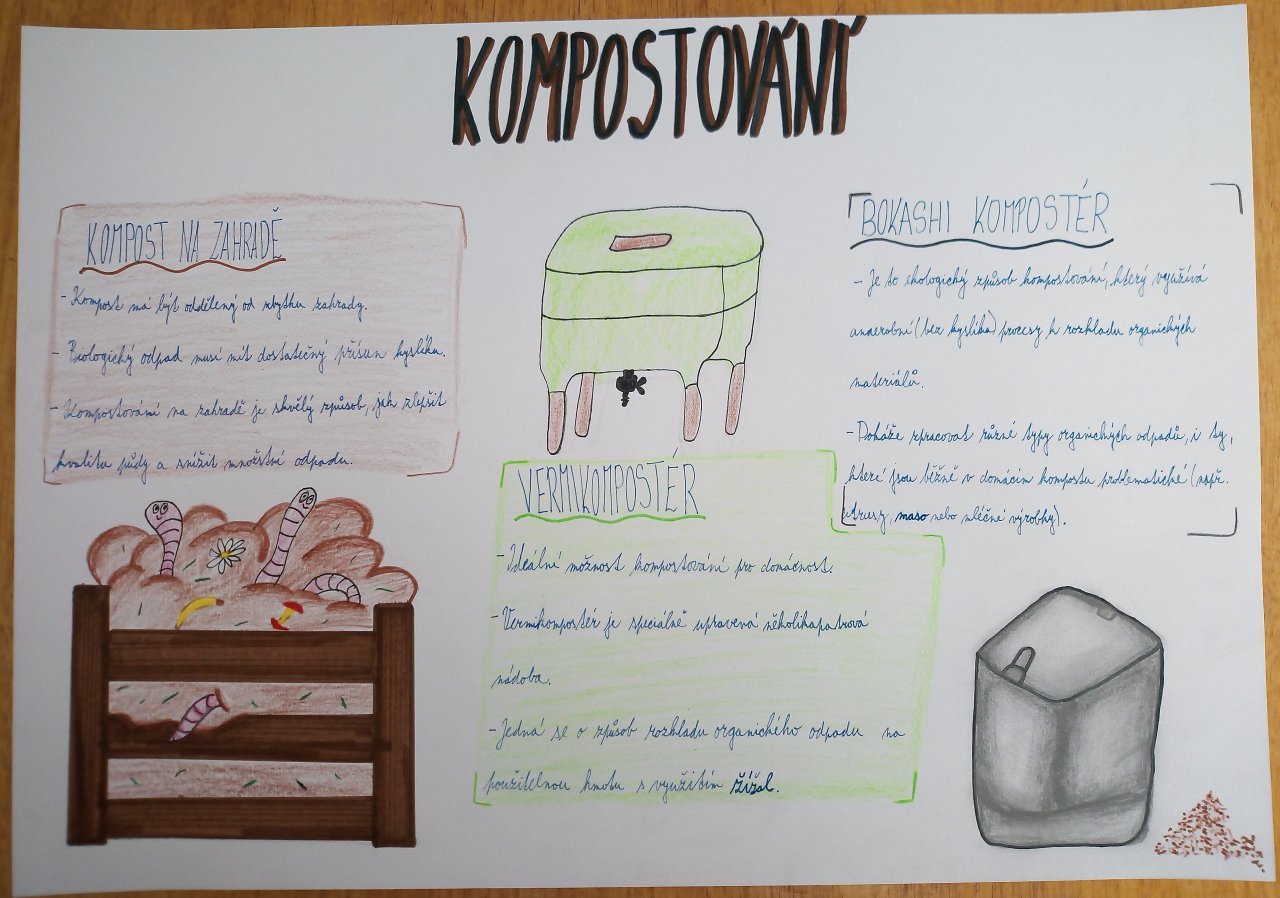 KOMPOSTOVÁNÍ
KOMPOST NA ZAHRADĚ
- Kompost má být oddělený od zbytku zahrady.
- Biologický odpad musí mít dostatečný přísun kyslíku.
- Kompostování na zahradě je skvělý způsob, jak zlepšit
kvalitu půdy a snížit množství odpadu.
VERMIKOMPOSTÉR
- Ideální možnost kompostování pro domácnost.
- Vermikompostér je speciálně upravená několikapatrová
nádoba.
- Jedná se o způsob rozkladu organického odpadu na
použitelnou hmotu s využitím žížal.
BOKASHI KOMPOSTÉR
- Je to ekologický způsob kompostování, který využívá
anaerobní (bez kyslíka) procesy k rozkladu organických
materiálů.
- Dokáže zpracovat různé typy organických odpadů, i ty,
které jsou běžně v domácím kompostu problematické (např.
maso nebo mléčné výrobky).